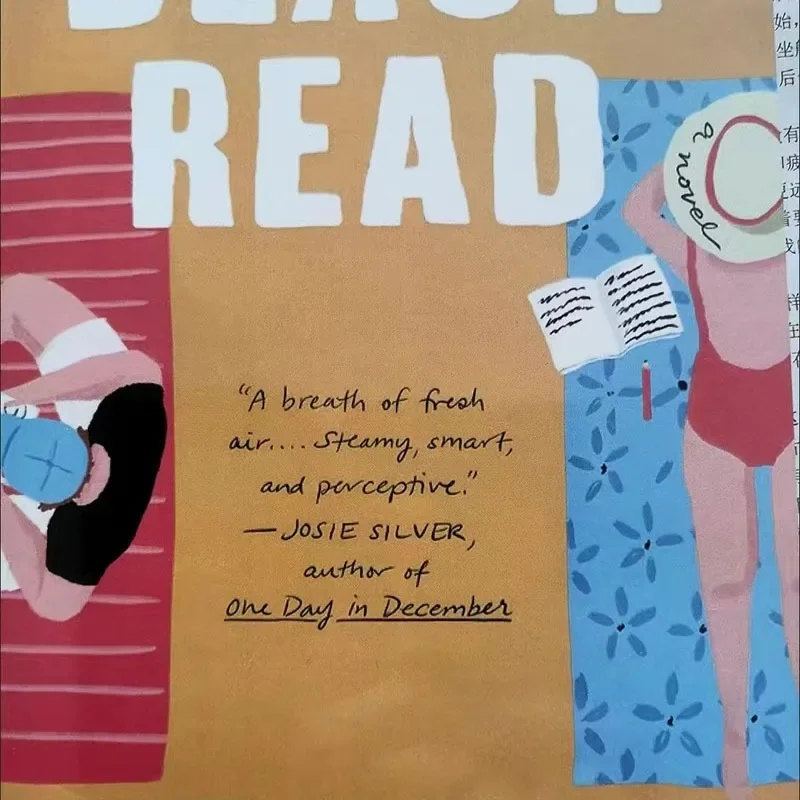 BEACH
READ
a novel
"A breath of fresh
air.... Steamy, smart,
and perceptive."
— JOSIE SILVER,
author of
One Day in December
始，
坐
后
有
样
在